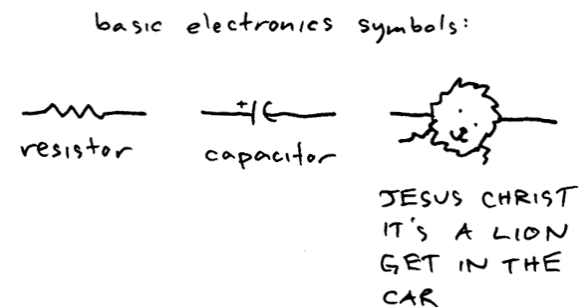 basic electronics symbols:
+
resistor
capacitor
JESUS CHRIST
IT'S A LION
GET IN THE
CAR